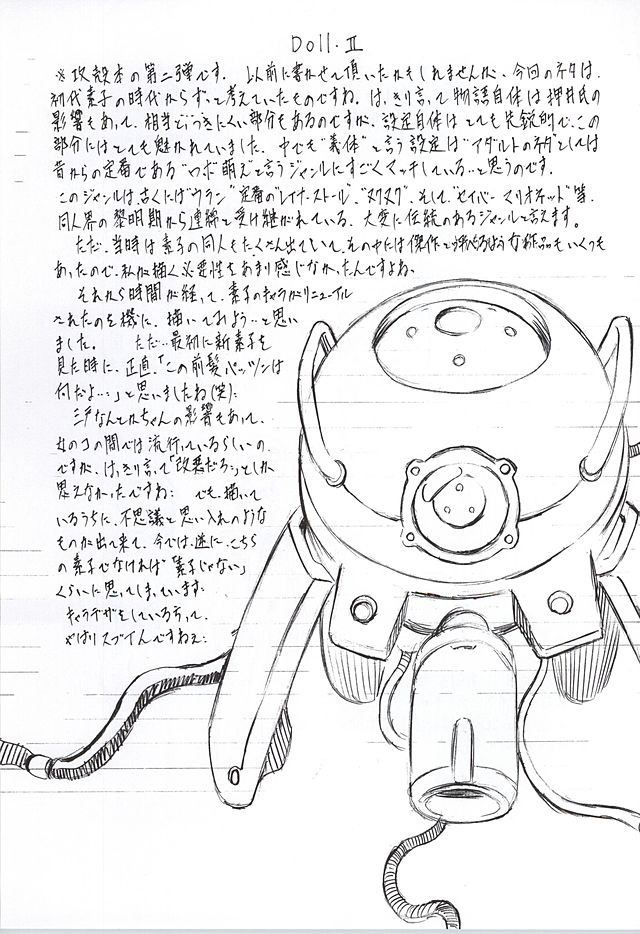 Doll.Ⅱ
※攻殻本の第二弾です。 以前に書かせて頂いたかもしれませんが、今回のネタは、
初代素子の時代からずっと考えていたものですね。はっきり言って物語自体は押井氏の
影響もあって、相当とっつきにくい部分もあるのですが、設定自体はとても先鋭的で、この
部分にはとても魅かれていました。中でも"義体"と言う設定は"アダルトのネタ"としては
昔からの定番である"ロボ萌え"と言うジャンルにすごくマッチしている…と思うのです。
このジャンルは、古くは"ウラン"定番の"レイナ・ストール"、"ヌクヌク"、そして"セイバーマリオネット"等、
同人界の黎明期から連綿と受け継がれている、大変に伝統のあるジャンルと言えます。
ただ、当時は素子の同人もたくさん出ていて、その中には傑作と呼べるような作品もいくつも
あったので、私が描く必要性をあまり感じなかったんですよね。
それから時間が経って、素子のキャラがリニューアル
されたのを機に、描いてみよう…と思い
ました。 ただ…最初に新素子を
見た時に、正直、「この前髪パッツンは
何だよ…」と思いましたね(笑)。
三戸なんとかちゃんの影響もあって、
女のコの間では流行っているらしいの
ですが、はっきり言って「改悪だろ…」としか
思えなかったですね… でも、描いて
いるうちに、不思議と思い入れのような
ものが出て来て、今では、逆に、こちら
の素子でなければ「素子じゃない」
くらいに思ってしまっています…
キャラデザをしている方って、
やはりスゴイんですねえ…